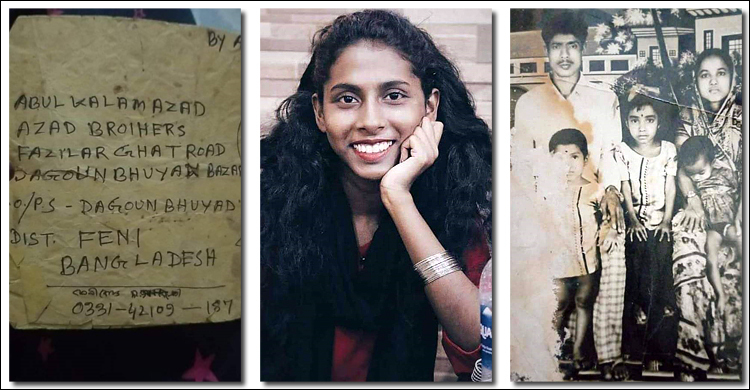 BY A
ABUL KALAM AZAD
AZAD BROTHERS
FAZILAR GHAT ROAD
DAGOUN BHUYAN BAZAR
O/PS - DAGOUN BHUYAD
DIST. FENI
BANGLADESH
0331-42109-187